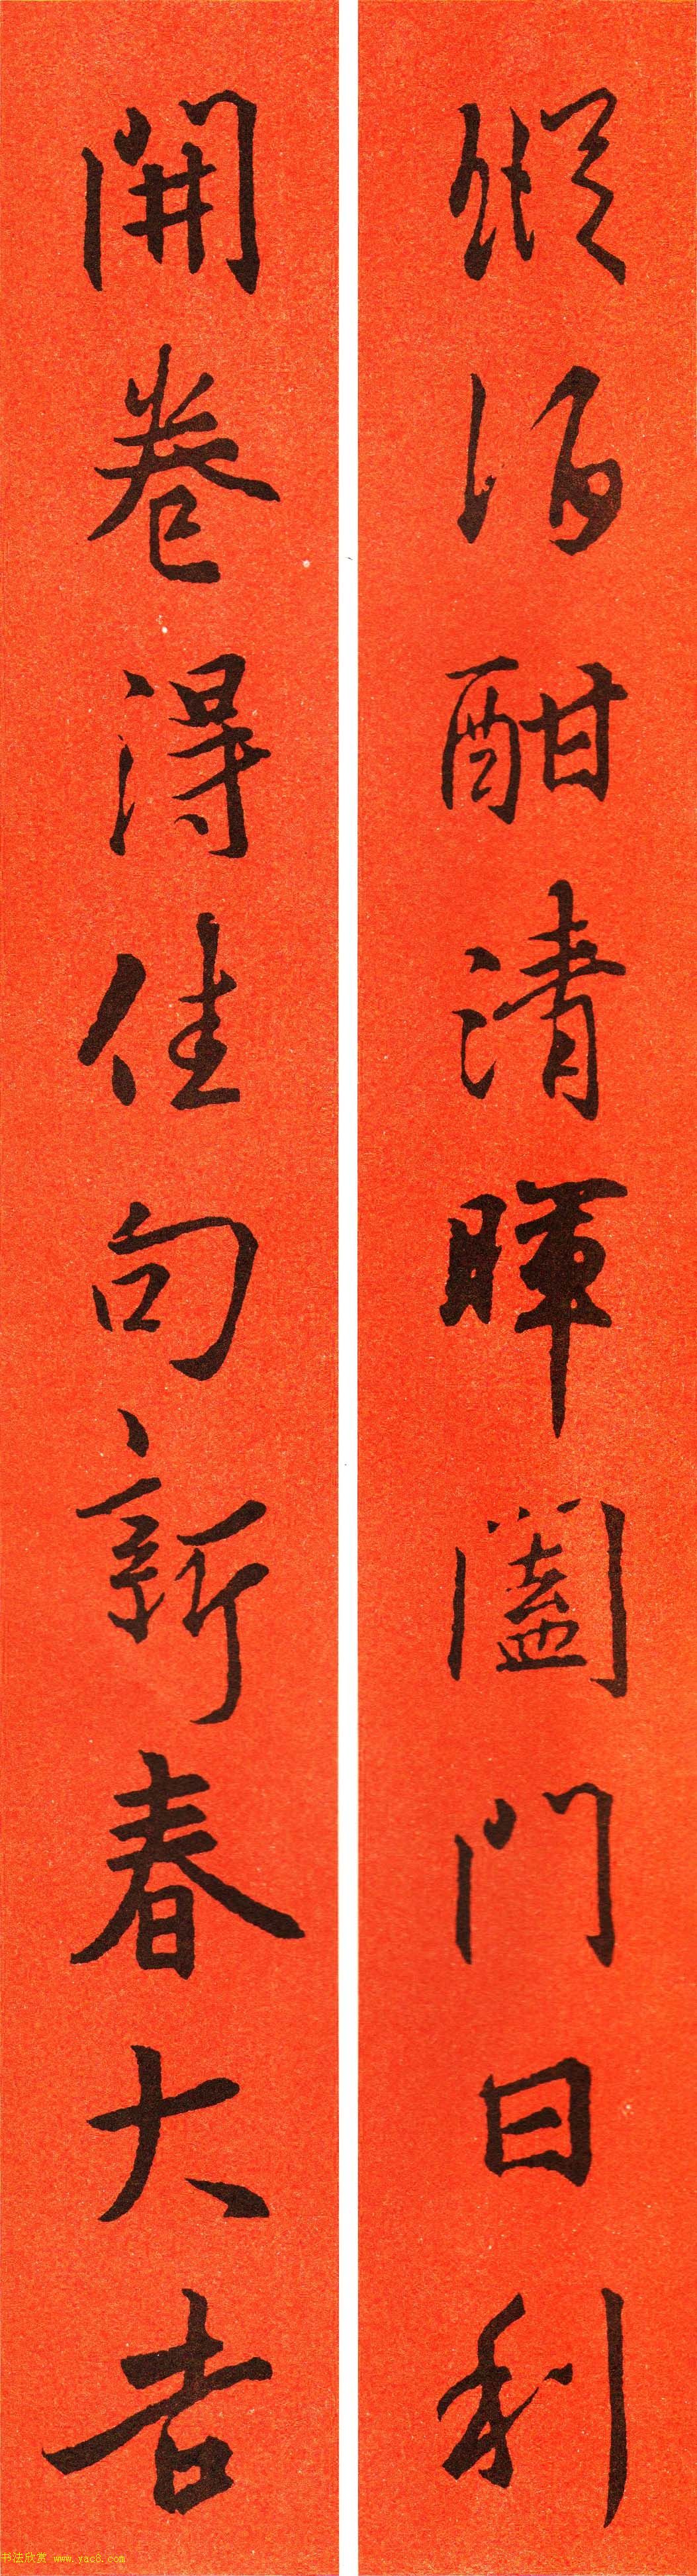 縱酒酣清暉闔門日利
開卷得佳句新春大吉
书法欣赏 www.yac8.com